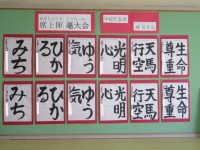 席上揮毫大会
学校代表者
生命尊重
天馬行空
光明心
ゆう気
ひかる
みち
生命尊重
天馬行空
光明心
ゆう気
ひかる
みち